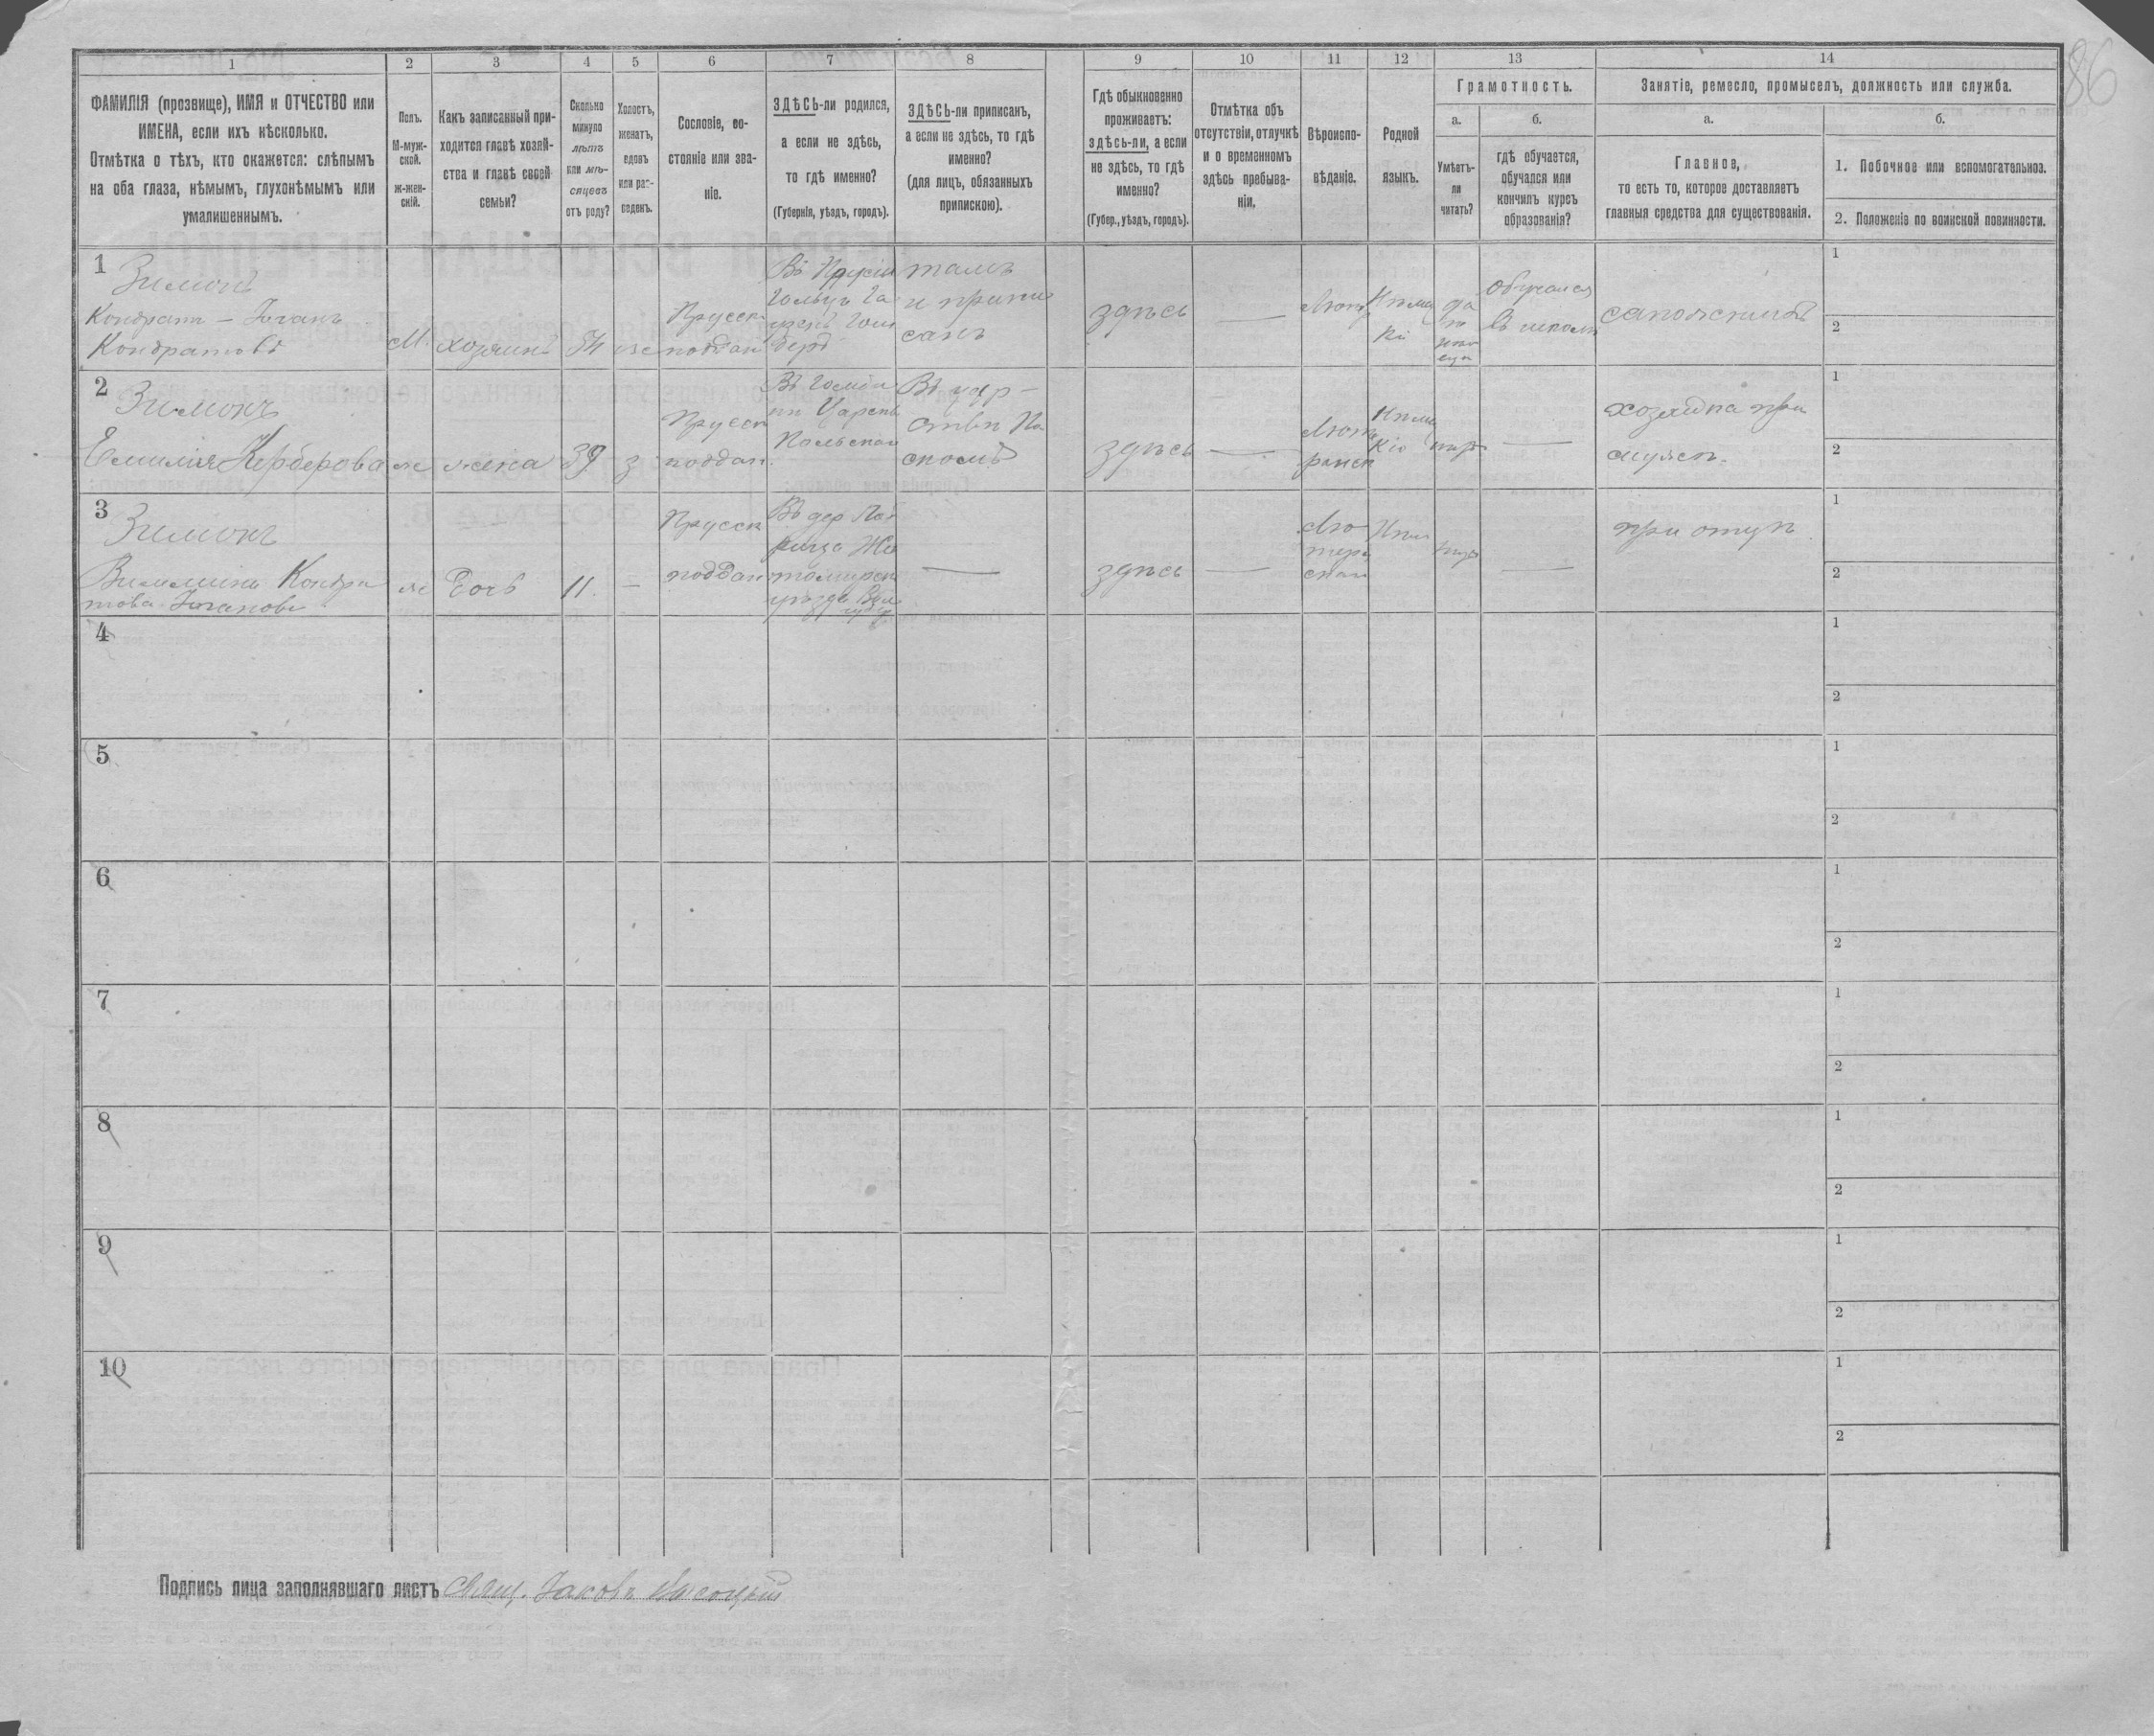 86
1
2
3
4
5
6
7
8
9
10
11
12
13
14
ФАМИЛІЯ (прозвище), ИМЯ и ОТЧЕСТВО или
ИМЕНА, если ихъ нѣсколько.
Отмѣтка о тѣхъ, кто окажется: слѣпымъ
на оба глаза, нѣмымъ, глухонѣмымъ или
умалишеннымъ.
Полъ.
М-муж-
ской.
ж-жен-
скій.
Какъ записанный при-
ходится главѣ хозяй-
ства и главѣ своей
семьи?
Сколько
минуло
лѣтъ
или мѣ-
сяцевъ
отъ роду?
Холостъ,
женатъ,
вдовъ
или раз-
веденъ.
Сословіе, со-
стояніе или зва-
ніе.
ЗДѢСЬ-ли родился,
а если не здѣсь,
то гдѣ именно?
(Губернія, уѣздъ, городъ).
ЗДѢСЬ-ли приписанъ,
а если не здѣсь, то гдѣ
именно?
(для лицъ, обязанныхъ
припискою).
Гдѣ обыкновенно
проживаетъ:
здѣсь-ли, а если
не здѣсь, то гдѣ
именно?
(Губер., уѣздъ, городъ).
Отмѣтка объ
отсутствіи, отлучкѣ
и о временномъ
здѣсь пребыва-
ніи.
Вѣроиспо-
вѣданіе.
Родной
языкъ.
Грамотность.
а.
Умѣетъ-
ли
читать?
б.
гдѣ обучается,
обучался или
кончилъ курсъ
образованія?
Занятіе, ремесло, промыселъ, должность или служба.
а.
Главное,
то есть то, которое доставляетъ
главныя средства для существованія.
б.
1. Побочное или вспомогательное.
2. Положеніе по воинской повинности.
1
Зимонъ
Кондрат - Іоганъ
Кондратовъ
М.
хозяинъ
54
Прусск
поддан
Въ Прусіи
тамъ
и припи
санъ
здѣсь
—
Лют
Нѣмец
кій
да
обучался
въ школѣ
сапожникъ
1
2
2
Зимонъ
Емилія Керберова
ж
жена
39
з
Прусск
поддан.
Царств
Польскаго
Въ цар-
ствѣ По
скомъ
здѣсь
—
Люте
ранск
Нѣме
кій
нѣтъ
—
хозяйка при
мужѣ.
1
2
3
Зимонъ
Вильгельмина Кондра
това-Іоганова
ж
дочь
11.
—
Прусск
поддан
Въ дер
Жи
томирск
уѣзда Вол
губер
—
здѣсь
—
Лю
тера
скаго
Нѣм
нѣтъ
—
при отцѣ.
1
2
4
1
2
5
1
2
6
1
2
7
1
2
8
1
2
9
1
2
10
1
2
Подпись лица заполнявшаго листъ Свящ. Іаковъ Высоцкій